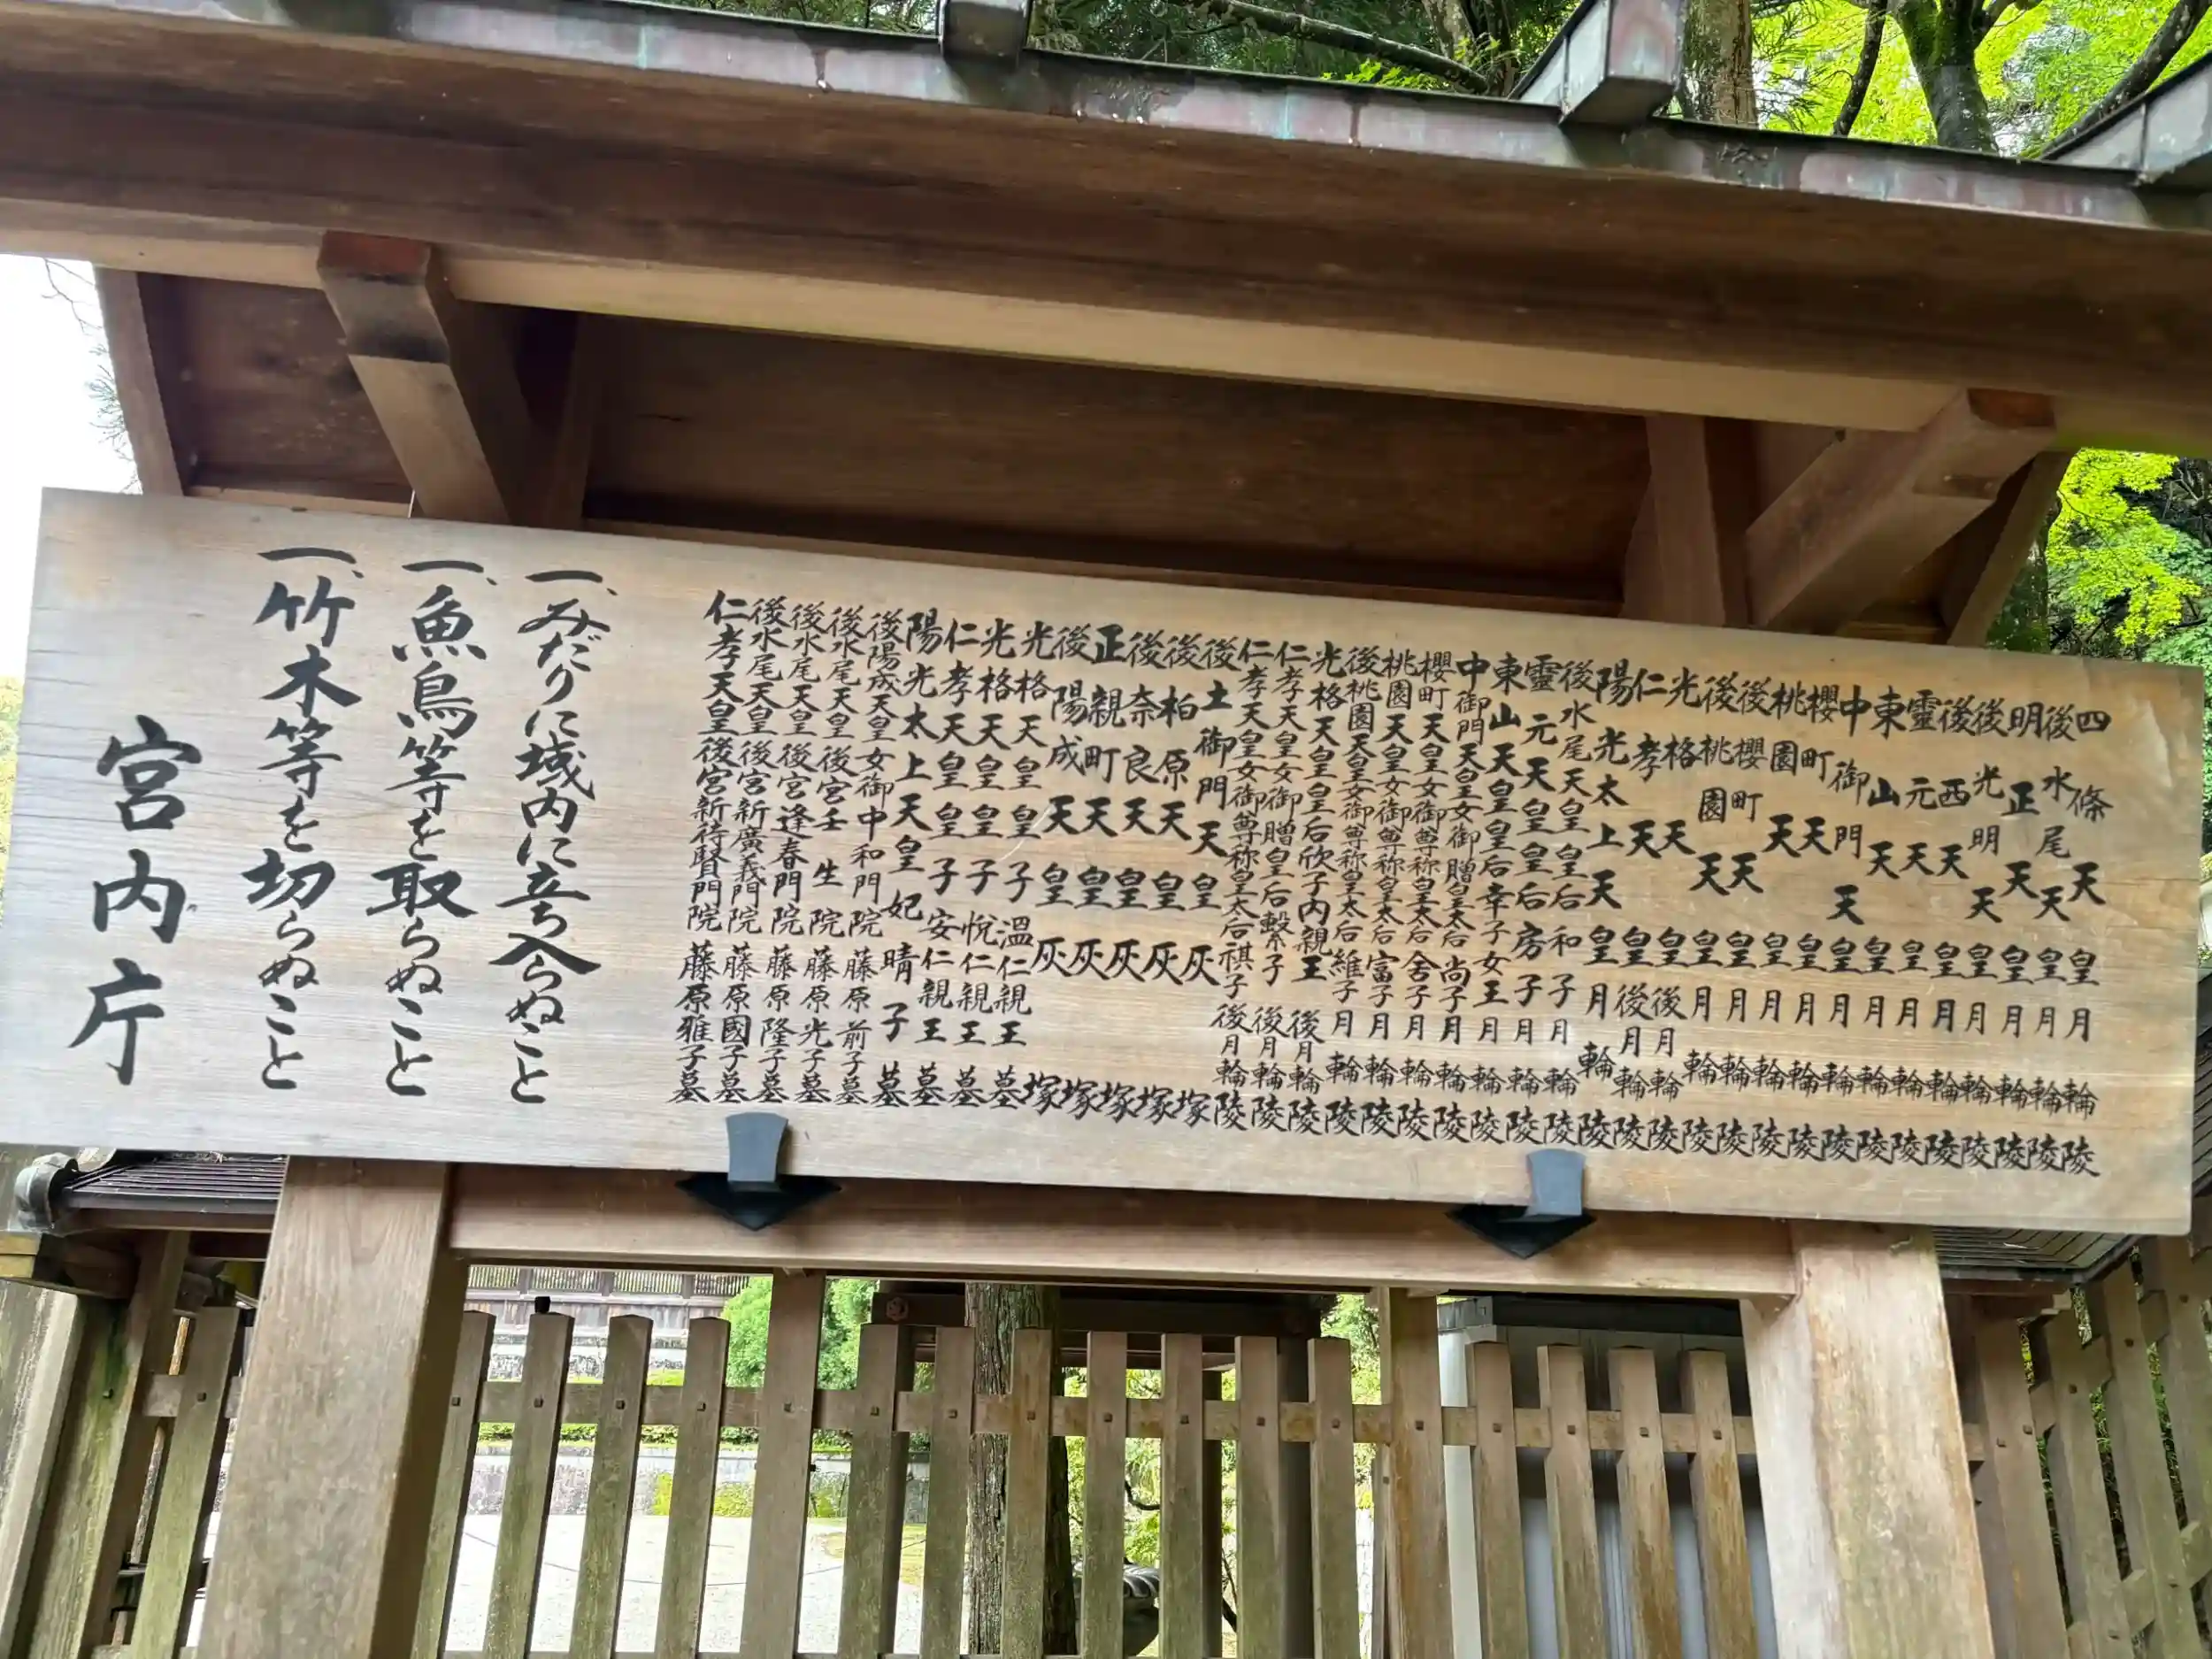 四條天皇月輪陵
後水尾天皇月輪陵
明正天皇月輪陵
後光明天皇月輪陵
後西天皇月輪陵
靈元天皇月輪陵
東山天皇月輪陵
中御門天皇月輪陵
櫻町天皇月輪陵
桃園天皇月輪陵
後櫻町天皇月輪陵
後桃園天皇月輪陵
光格天皇後月輪陵
仁孝天皇後月輪陵
陽光太上天皇月輪陵
後水尾天皇皇后和子月輪陵
靈元天皇皇后房子月輪陵
東山天皇皇后幸子女王月輪陵
中御門天皇女御贈皇太后尚子月輪陵
櫻町天皇女御尊称皇太后舍子月輪陵
桃園天皇女御尊称皇太后富子月輪陵
後桃園天皇女御尊称皇太后維子月輪陵
光格天皇皇后欣子内親王後月輪陵
仁孝天皇女御贈皇后繫子後月輪陵
仁孝天皇女御尊称皇太后祺子後月輪陵
後土御門天皇灰塚
後柏原天皇灰塚
後奈良天皇灰塚
正親町天皇灰塚
後陽成天皇灰塚
光格天皇皇子溫仁親王墓
光格天皇皇子悅仁親王墓
仁孝天皇皇子安仁親王墓
陽光太上天皇妃晴子墓
後陽成天皇女御中和門院藤原前子墓
後水尾天皇後宮壬生院藤原光子墓
後水尾天皇後宮逢春門院藤原隆子墓
後水尾天皇後宮新廣義門院藤原國子墓
仁孝天皇後宮新待賢門院藤原雅子墓
一、みだりに域内に立ち入らぬこと
一、魚鳥等を取らぬこと
一、竹木等を切らぬこと
宮内庁